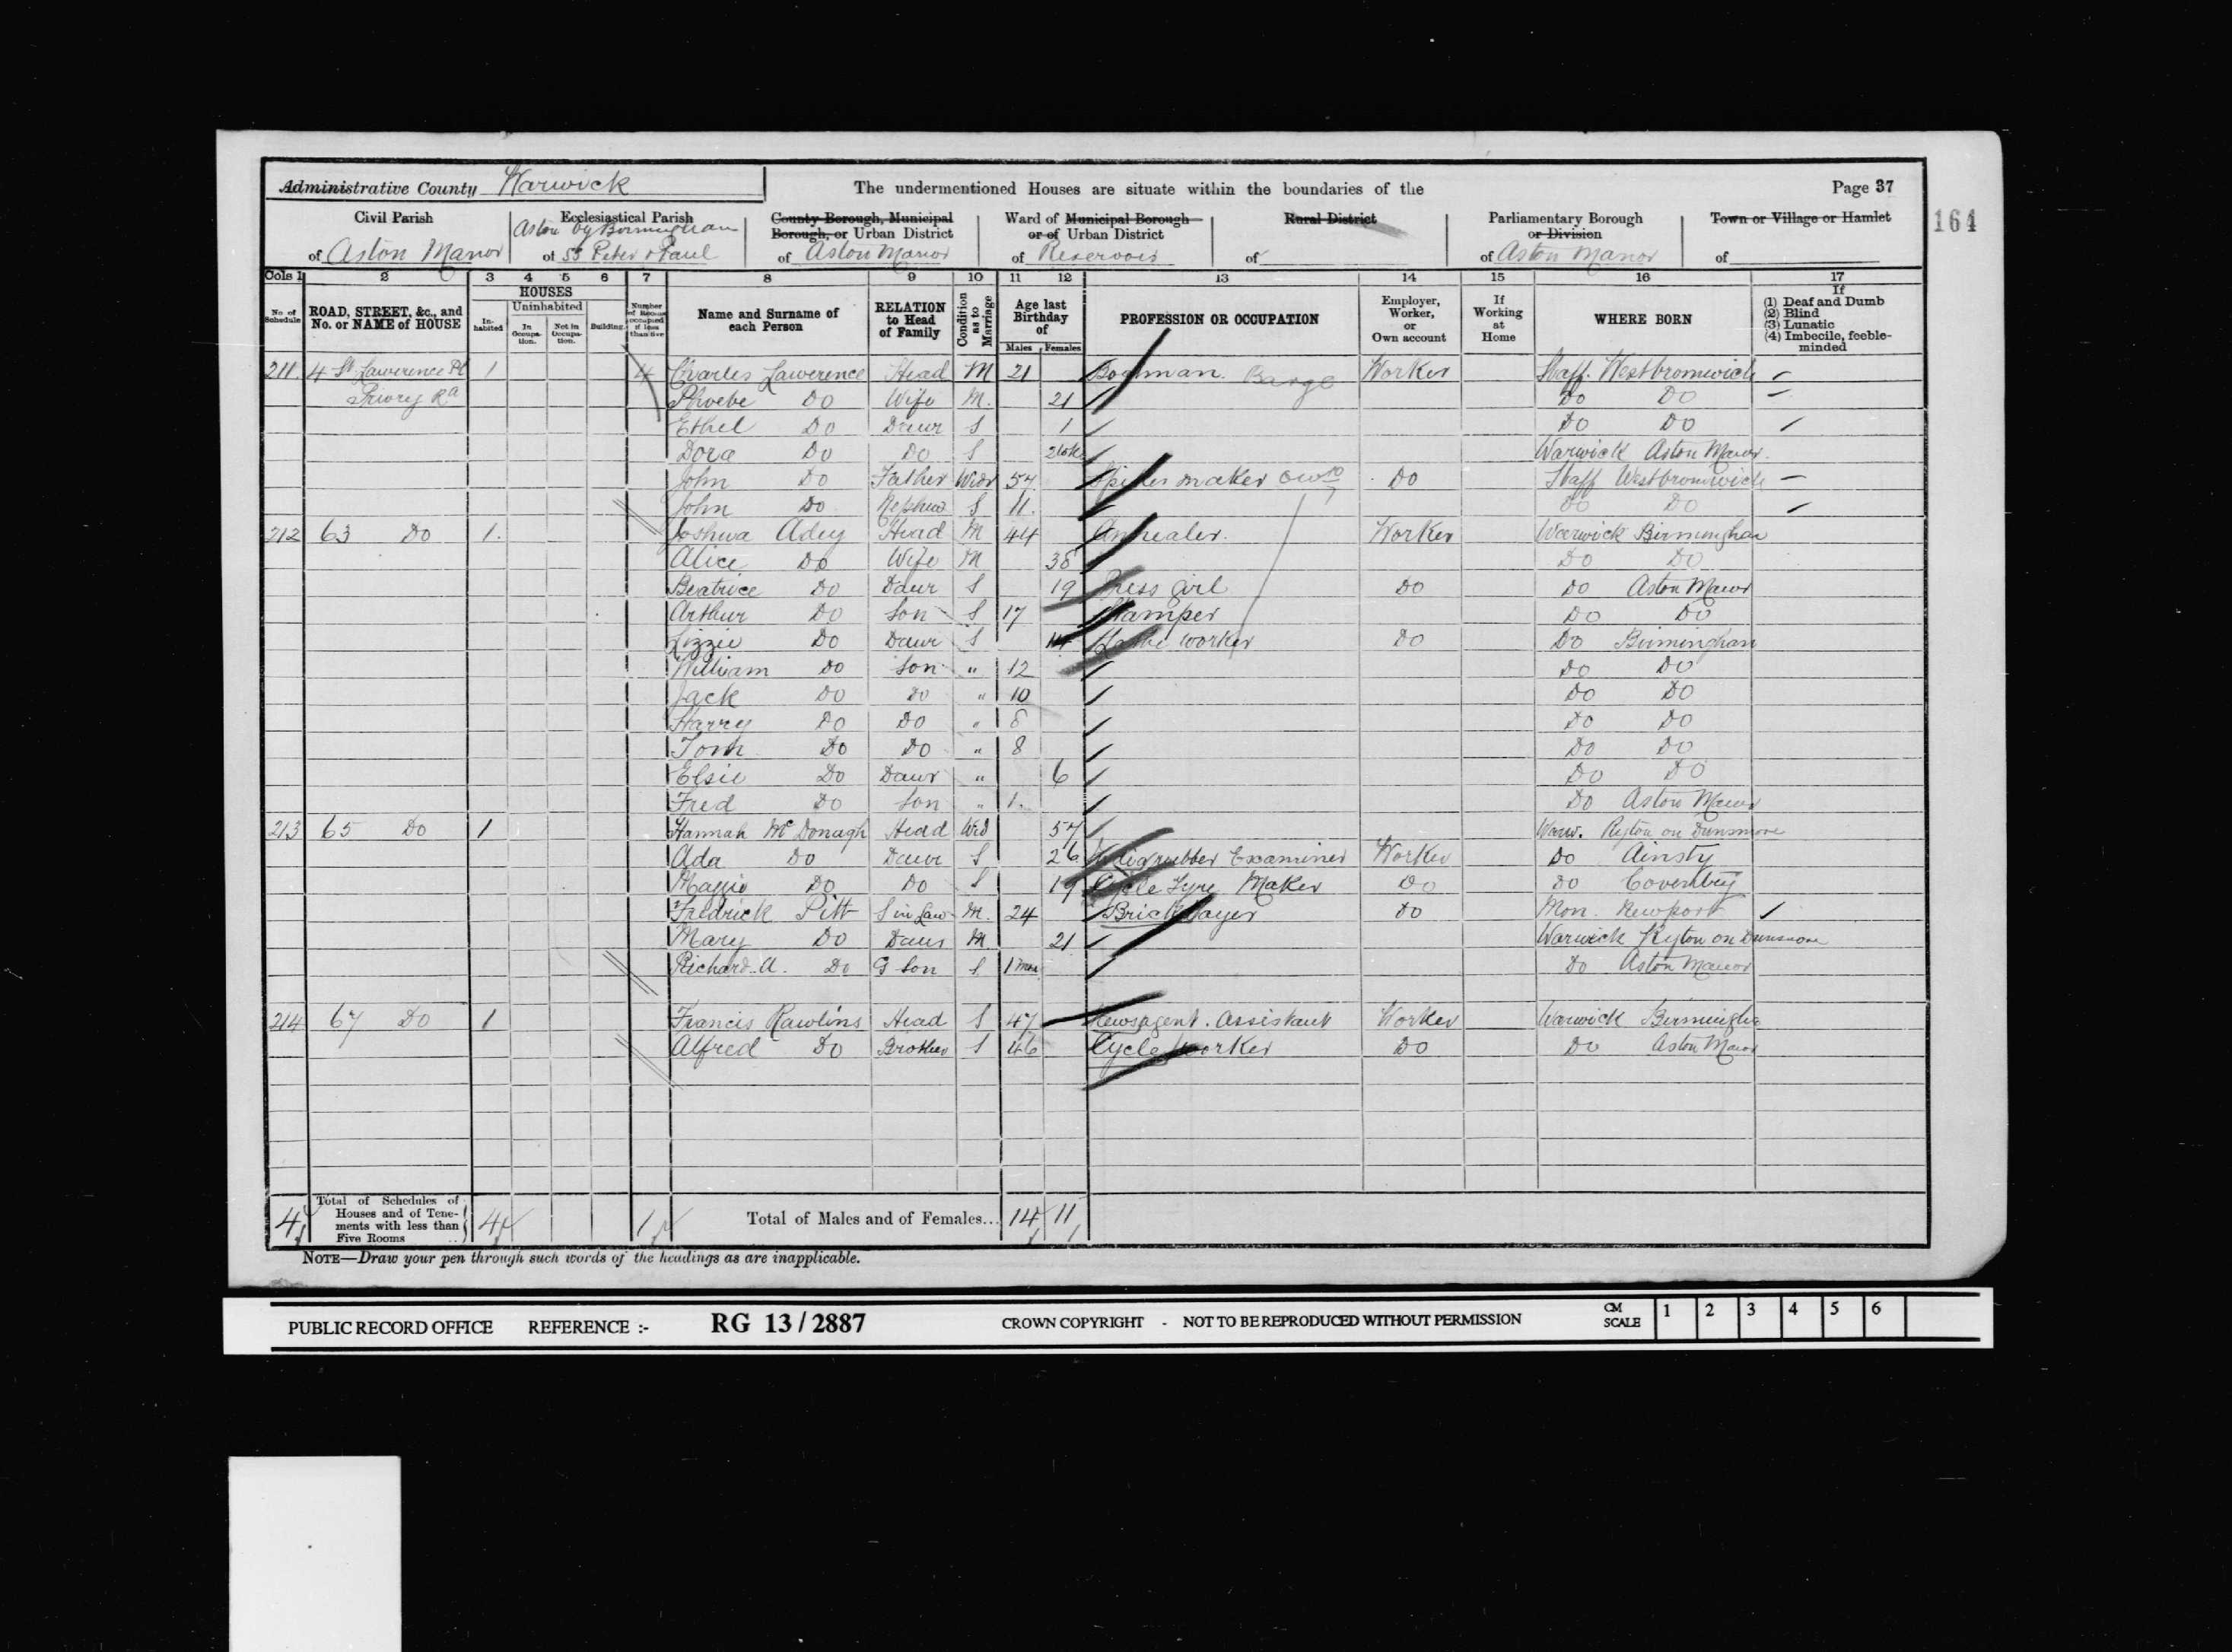 Administrative County Warwick The undermentioned Houses are situate within the boundaries of the Page 37
164
Civil Parish of Aston Manor
Ecclesiastical Parish of Aston by Birmingham SS Peter & Paul
County Borough, Municipal Borough, or Urban District of Aston Manor
Ward of Municipal Borough or of Urban District of Reservoir
Rural District of
Parliamentary Borough or Division of Aston Manor
Town or Village or Hamlet of
Cols 1 2 3 4 5 6 7 8 9 10 11 12 13 14 15 16 17
No of Schedule
ROAD, STREET, &c., and No. or NAME of HOUSE
HOUSES
Inhabited
Uninhabited
In Occupation.
Not in Occupation.
Building.
Number of Rooms occupied if less than five
Name and Surname of each Person
RELATION to Head of Family
Condition as to Marriage
Age last Birthday of
Males Females
PROFESSION OR OCCUPATION
Employer, Worker, or Own account
If Working at Home
WHERE BORN
If
(1) Deaf and Dumb
(2) Blind
(3) Lunatic
(4) Imbecile, feeble-minded
211 4 St Lawerence Pl 1 4 Charles Lawerence Head M 21 Boatman Barge Worker Staff. Westbromwich
Priory Rd Phoebe Do Wife M. 21 Do Do
Ethel Do Daur S 1 Do Do
Dora Do Do S Warwick Aston Manor.
John Do Father Widr 57 maker Do Staff Westbromwich
John Do Nephew S 11. Do Do
212 63 Do 1. Joshua Adey Head M 44 Annealer. Worker Warwick Birmingham
Alice Do Wife M 38 Do Do
Beatrice Do Daur S 19 Press Girl Do Do Aston Manor
Arthur Do Son S 17 Stamper Do Do
Lizzie Do Daur S 14 Lathe worker Do Do Birmingham
William Do Son " 12 Do Do
Jack Do Do " 10 Do Do
Harry Do Do " 8 Do Do
Tom Do Do " 8 Do Do
Elsie Do Daur " 6 Do Do
Fred Do Son " 1. Do Aston Manor
213 65 Do 1 Hannah McDonagh Head Wid 57 Warw. Ryton on Dunsmore
Ada Do Daur S 26 Indiarubber Examiner Worker Do Ainsty
Maggie Do Do S 19 Cycle Tyre Maker Do Do Coventry
Fredrick Pitt S in Law M. 24 Bricklayer Do Mon. Newport
Mary Do Daur M 21 Warwick Ryton on Dunsmore
Richard. A. Do G Son S 1 mon Do Aston Manor
214 67 Do 1 Francis Rawlins Head S 47 Newsagent. Assistant Worker Warwick Birmingham
Alfred Do Brother S 46 Cycle Worker Do Do Aston Manor
4 Total of Schedules of Houses and of Tenements with less than Five Rooms 4 1 Total of Males and of Females... 14 11
NOTE—Draw your pen through such words of the headings as are inapplicable.
PUBLIC RECORD OFFICE REFERENCE :- RG 13 / 2887 CROWN COPYRIGHT - NOT TO BE REPRODUCED WITHOUT PERMISSION CM SCALE 1 2 3 4 5 6